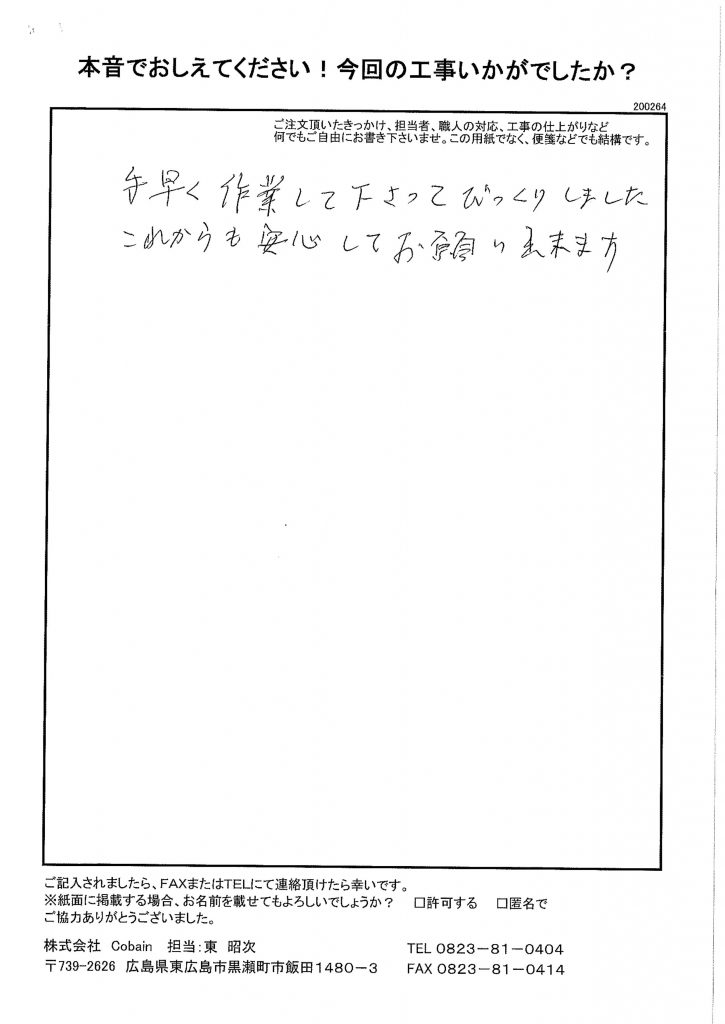 本音でおしえてください！今回の工事いかがでしたか？
200264
ご注文頂いたきっかけ、担当者、職人の対応、工事の仕上がりなど
何でもご自由にお書き下さいませ。この用紙でなく、便箋などでも結構です。
手早く作業して下さってびっくりしました
これからも安心してお願い出来ます
ご記入されましたら、FAXまたはTELにて連絡頂けたら幸いです。
※紙面に掲載する場合、お名前を載せてもよろしいでしょうか？　□許可する　□匿名で
ご協力ありがとうございました。
株式会社　Cobain　担当：東　昭次　TEL 0823－81－0404
〒739-2626　広島県東広島市黒瀬町市飯田1480－3　FAX 0823－81－0414